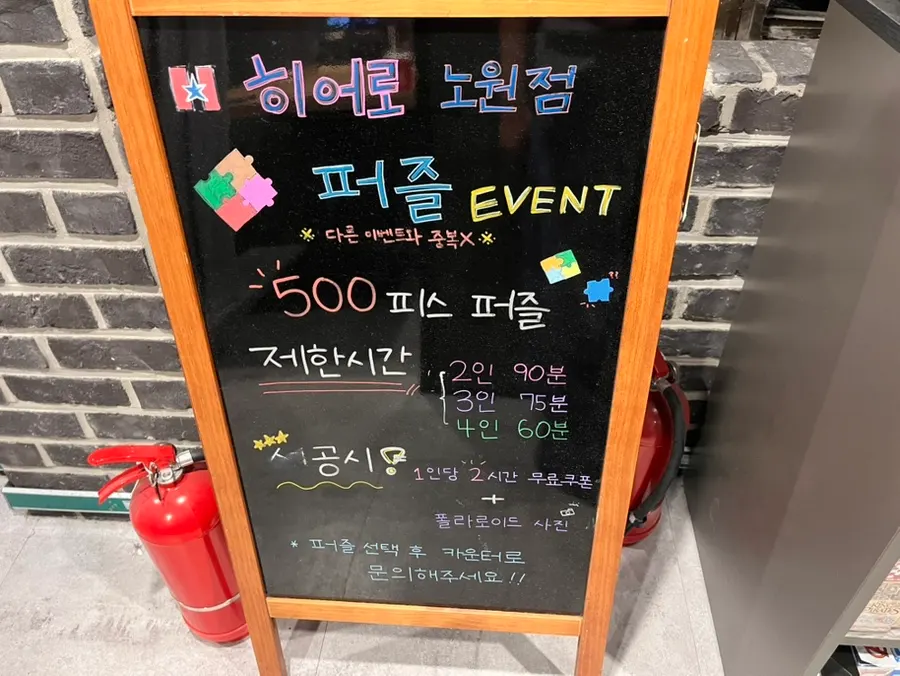 히어로 노원점
퍼즐 EVENT
다른 이벤트와 중복X
500 피스 퍼즐
제한시간
2인 90분
3인 75분
4인 60분
성공시!
1인당 2시간 무료쿠폰
+
폴라로이드 사진
* 퍼즐 선택 후 카운터로
문의해주세요!!